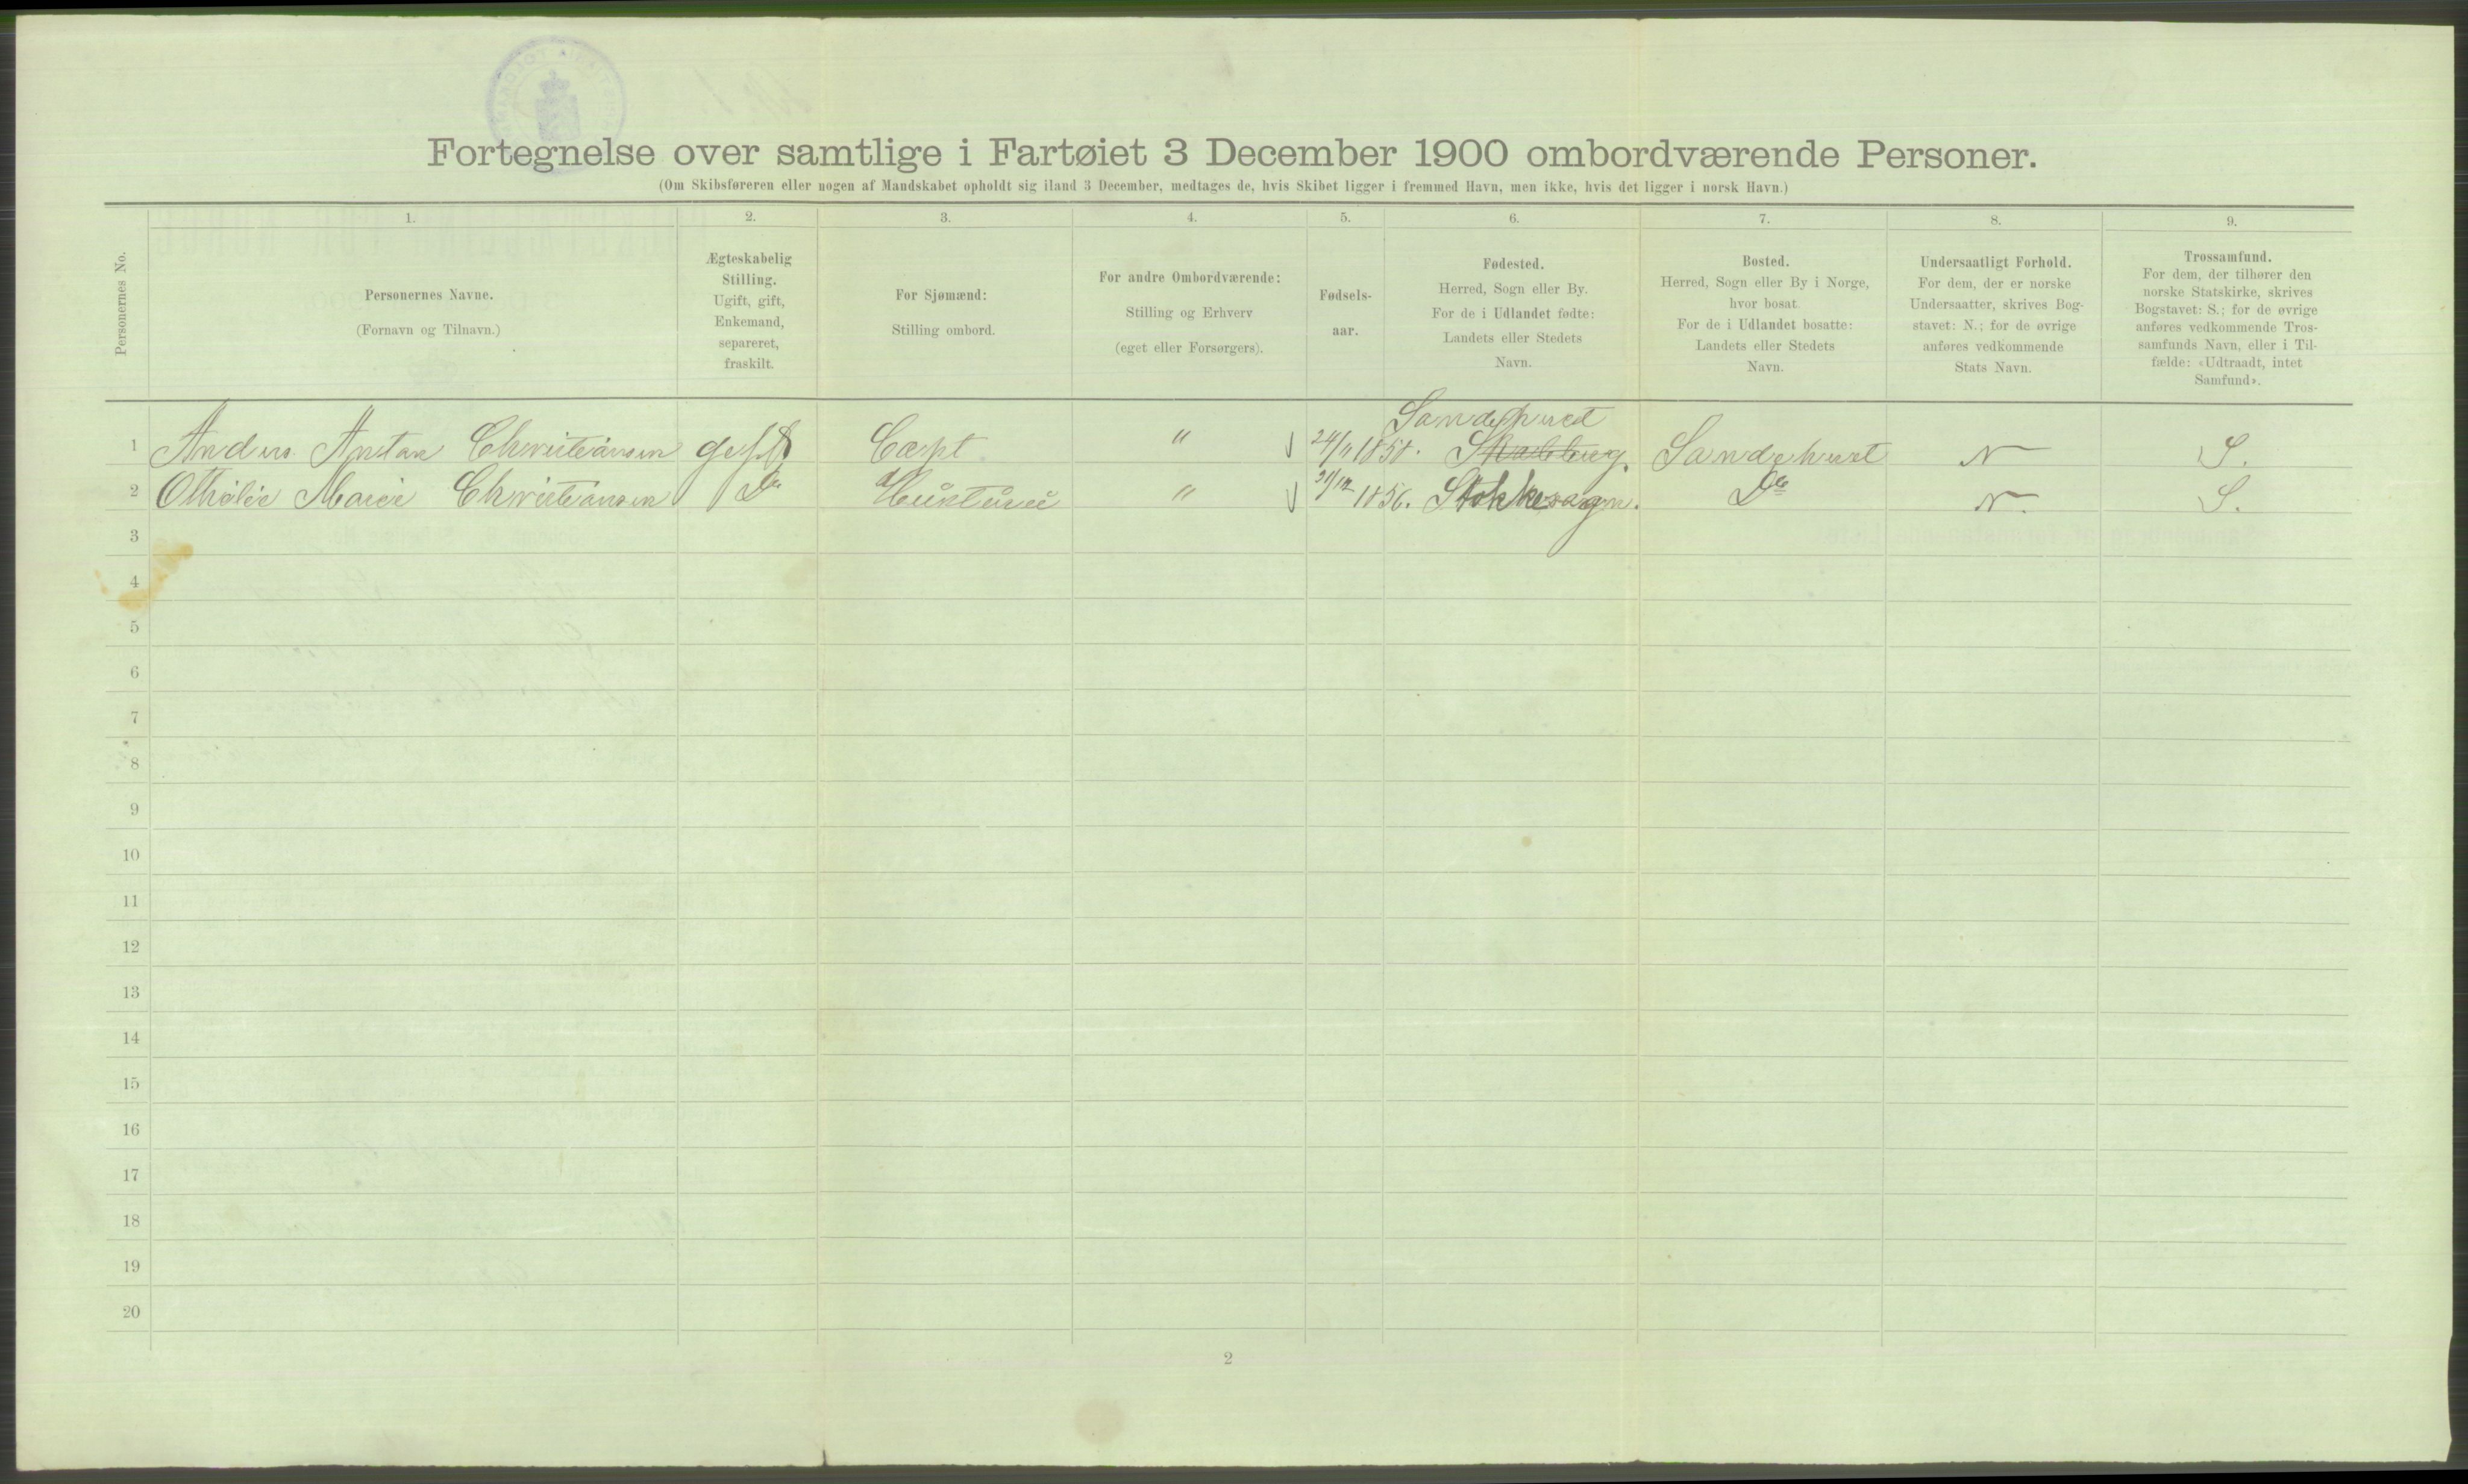 Fortegnelse over samtlige i Fartøiet 3 December 1900 ombordværende Personer.
(Om Skibsføreren eller nogen af Mandskabet opholdt sig iland 3 December, medtages de, hvis Skibet ligger i fremmed Havn, men ikke, hvis det ligger i norsk Havn.)
Personernes No.
1.
Personernes Navne.
(Fornavn og Tilnavn.)
2.
Ægteskabelig
Stilling.
Ugift, gift,
Enkemand,
separeret,
fraskilt.
3.
For Sjømænd:
Stilling ombord.
4.
For andre Ombordværende:
Stilling og Erhverv
(eget eller Forsørgers).
5.
Fødsels-
aar.
6.
Fødested.
Herred, Sogn eller By.
For de i Udlandet fødte:
Landets eller Stedets
Navn.
7.
Bosted.
Herred, Sogn eller By i Norge,
hvor bosat.
For de i Udlandet bosatte:
Landets eller Stedets
Navn.
8.
Undersaatligt Forhold.
For dem, der er norske
Undersaatter, skrives Bog-
stavet: N.; for de øvrige
anføres vedkommende
Stats Navn.
9.
Trossamfund.
For dem, der tilhører den
norske Statskirke, skrives
Bogstavet: S.; for de øvrige
anføres vedkommende Tros-
samfunds Navn, eller i Til-
fælde: «Udtraadt, intet
Samfund».
Sandehered
1 Anders Anton Christiansen gift Capt " 24/11 1850. Sandeheret N S.
2 Othilie Marie Christiansen Do Hustru " 31/12 1856. Stokkesogn. Do N. S.
3
4
5
6
7
8
9
10
11
12
13
14
15
16
17
18
19
20
2